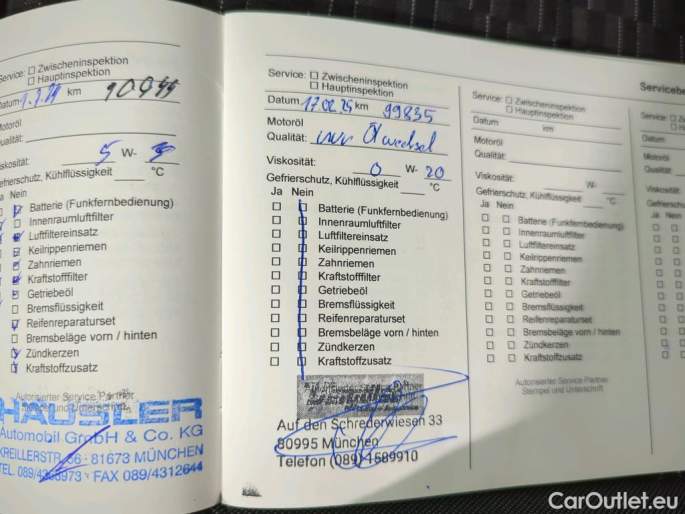 Service: Zwischeninspektion
Hauptinspektion
Datum km
Motoröl
Qualität:
Viskosität: 5 W-
Gefrierschutz, Kühlflüssigkeit °C
Ja Nein
Batterie (Funkfernbedienung)
Innenraumluftfilter
Luftfiltereinsatz
Keilrippenriemen
Zahnriemen
Kraftstofffilter
Getriebeöl
Bremsflüssigkeit
Reifenreparaturset
Bremsbeläge vorn / hinten
Zündkerzen
Kraftstoffzusatz
Autorisierter Service Partner
HÄUSLER
Automobil GmbH & Co. KG
KREILLERSTR. 81673 MÜNCHEN
TEL 089/ FAX 089/4312644
Service: Zwischeninspektion
Hauptinspektion
Datum 17.02.25 km 99835
Motoröl
Qualität: nur Ölwechsel
Viskosität: 0 W- 20
Gefrierschutz, Kühlflüssigkeit °C
Ja Nein
Batterie (Funkfernbedienung)
Innenraumluftfilter
Luftfiltereinsatz
Keilrippenriemen
Zahnriemen
Kraftstofffilter
Getriebeöl
Bremsflüssigkeit
Reifenreparaturset
Bremsbeläge vorn / hinten
Zündkerzen
Kraftstoffzusatz
Auf den Schrederwiesen 33
80995 München
Telefon (089) 1589910
Service: Zwischeninspektion
Hauptinspektion
Datum km
Motoröl
Qualität:
Viskosität: W-
Gefrierschutz, Kühlflüssigkeit °C
Ja Nein
Batterie (Funkfernbedienung)
Innenraumluftfilter
Luftfiltereinsatz
Keilrippenriemen
Zahnriemen
Kraftstofffilter
Getriebeöl
Bremsflüssigkeit
Reifenreparaturset
Bremsbeläge vorn / hinten
Zündkerzen
Kraftstoffzusatz
Autorisierter Service Partner
Stempel und Unterschrift
Servicebe
Service:
Datum
Motoröl
Qualität:
Viskosität:
Gefrierschutz
Ja Nein
CarOutlet.eu